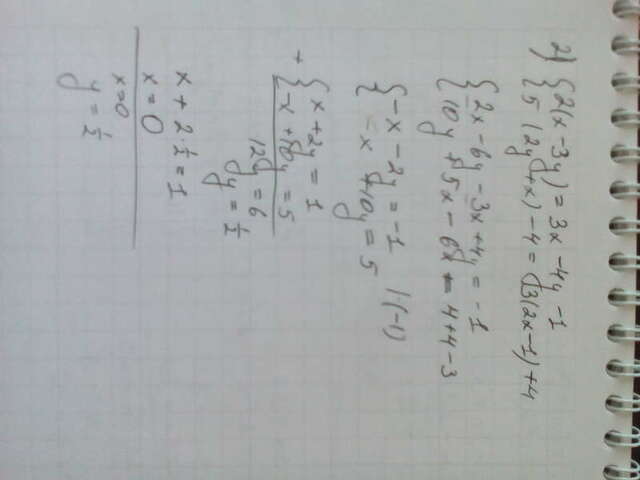 2) { 2(x - 3y) = 3x - 4y - 1
{ 5(2y + x) - 4 = 3(2x - 1) + 4
{ 2x - 6y - 3x + 4y = -1
{ 10y + 5x - 6x = 4 + 4 - 3
{ -x - 2y = -1 | · (-1)
{ -x + 10y = 5
+ { x + 2y = 1
{ -x + 10y = 5
12y = 6
y = 1/2
x + 2 · 1/2 = 1
x = 0
x = 0
y = 1/2